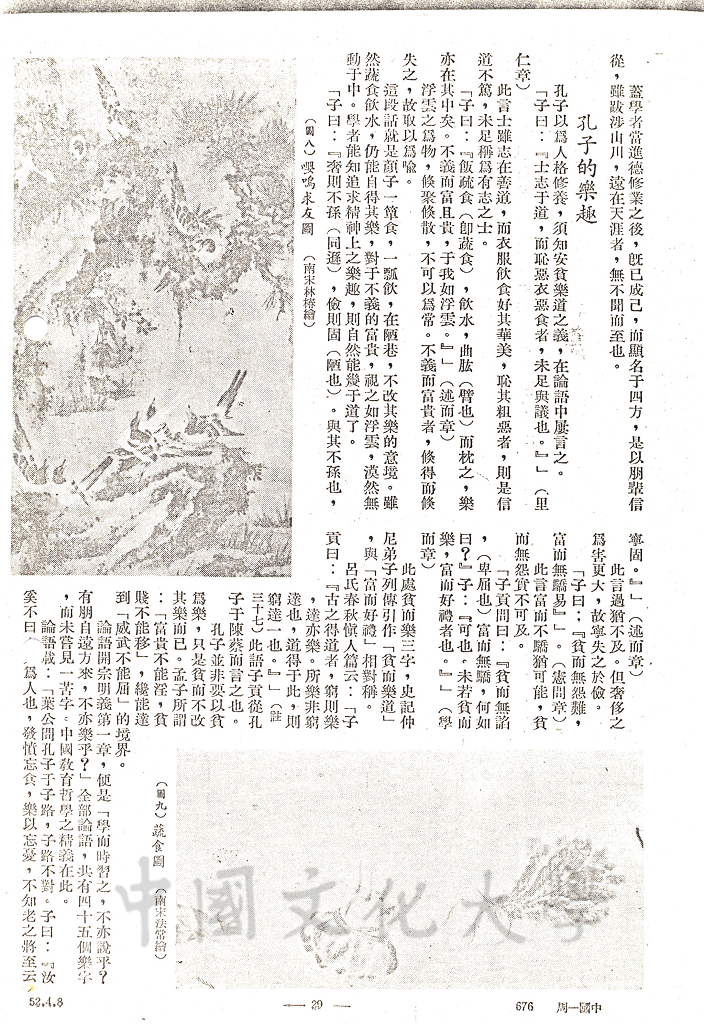 蓋學者當進德修業之後，旣已成己，而顯名于四方，是以朋輩信
從，雖跋涉山川，遠在天涯者，無不聞而至也。
孔子的樂趣
孔子以爲人格修養，須知安貧樂道之義，在論語中屢言之。
「子曰：『士志于道，而恥惡衣惡食者，未足與議也。』」（里
仁章）
此言士雖志在善道，而衣服飲食好其華美，恥其粗惡者，則是信
道不篤，未足稱爲有志之士。
「子曰：『飯疏食（卽蔬食），飲水，曲肱（臂也）而枕之，樂
亦在其中矣。不義而富且貴，于我如浮雲。』」（述而章）
浮雲之爲物，倏聚倏散，不可以爲常。不義而富貴者，倏得而倏
失之，故取以爲喩。
這段話就是顏子一簞食，一瓢飲，在陋巷，不改其樂的意境。雖
然蔬食飲水，仍能自得其樂，對于不義的富貴，視之如浮雲，漠然無
動于中。學者能知追求精神上之樂趣，則自然能幾于道了。
「子曰：『奢則不孫（同遜），儉則固（陋也）。與其不孫也，
（圖八）嚶鳴求友圖 （南宋林椿繪）
寧固。』」（述而章）
此言過猶不及。但奢侈之
爲害更大，故寧失之於儉。
「子曰：『貧而無怨難，
富而無驕易』」。（憲問章）
此言富而不驕猶可能，貧
而無怨實不可及。
「子貢問曰：『貧而無諂
，（卑屈也）富而無驕，何如
曰？』子：『可也。未若貧而
樂，富而好禮者也。』」（學
而章）
此處貧而樂三字，史記仲
尼弟子列傳引作「貧而樂道」
，與「富而好禮」相對稱。
呂氏春秋愼人篇云：「子
貢曰：『古之得道者，窮則樂
，達亦樂。所樂非窮
達也，道得于此，則
窮達一也。』」（註
三十七）此語子貢從孔
子于陳蔡而言之也。
孔子並非要以貧
爲樂，只是貧而不改
其樂而已。孟子所謂
：「富貴不能淫，貧
賤不能移」，纔能達
到「威武不能屈」的境界。
論語開宗明義第一章，便是「學而時習之，不亦說乎？
有朋自遠方來，不亦樂乎？」全部論語，共有四十五個樂字
，而未嘗見一苦字。中國敎育哲學之精義在此。
論語載：「葉公問孔子于子路，子路不對。子曰：『汝
奚不曰 爲人也，發憤忘食，樂以忘憂，不知老之將至云
（圖九）蔬食圖 （南宋法常繪）
中國文化大學
52.4.8
— 29 —
676 周一國中